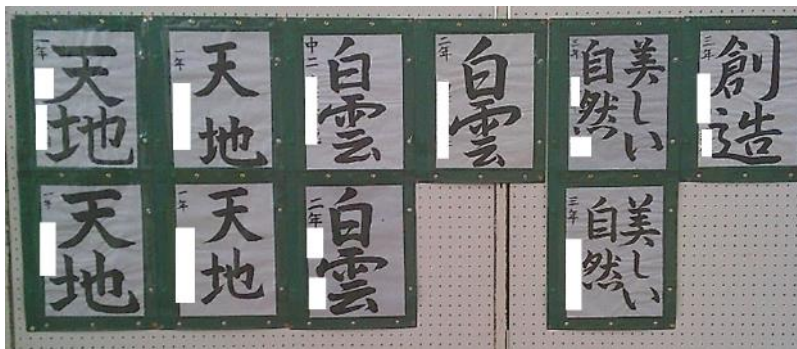 一年
天地
一年
天地
中二
白雲
二年
白雲
三年
美しい
自然
三年
創造
一年
天地
一年
天地
二年
白雲
三年
美しい
自然